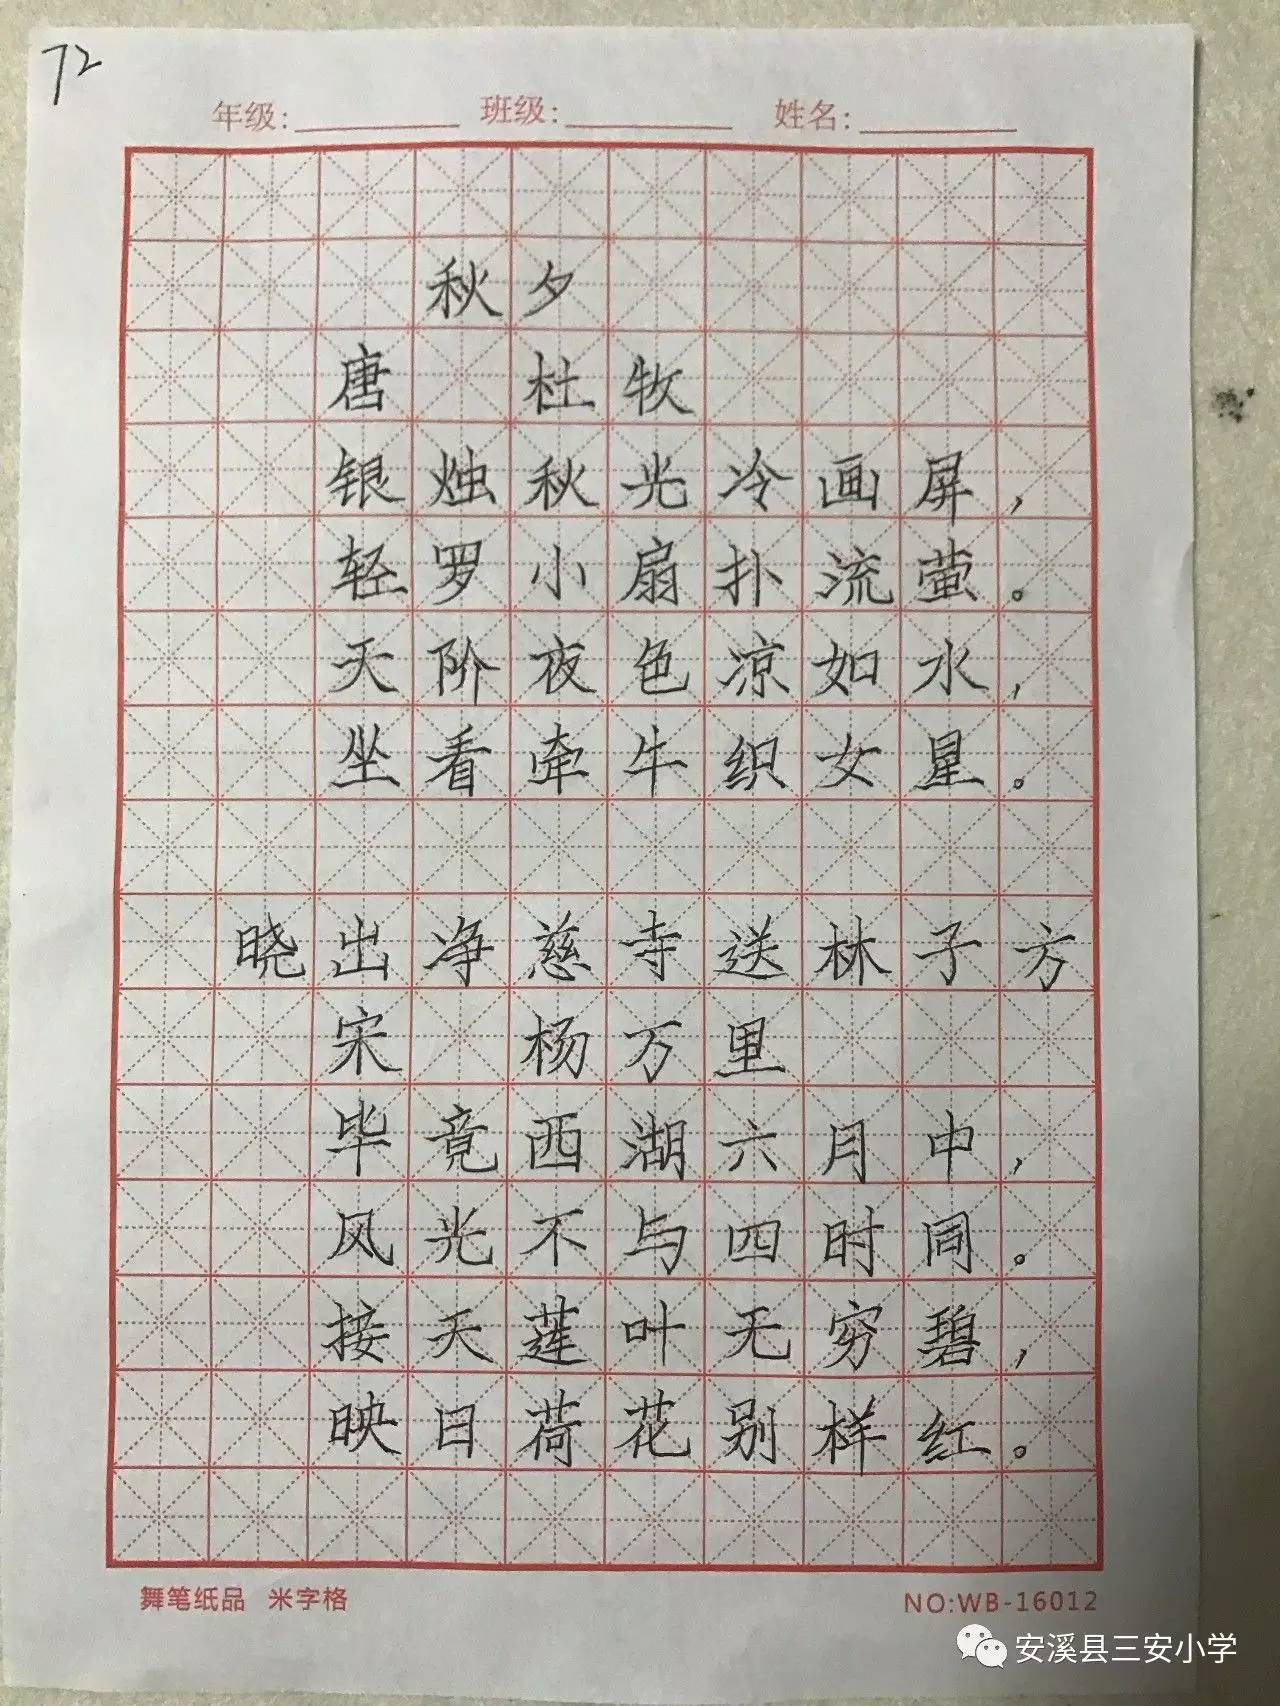 72
年级: 班级: 姓名:
秋夕
唐 杜牧
银烛秋光冷画屏,
轻罗小扇扑流萤。
天阶夜色凉如水,
坐看牵牛织女星。
晓出净慈寺送林子方
宋 杨万里
毕竟西湖六月中,
风光不与四时同。
接天莲叶无穷碧,
映日荷花别样红。
舞笔纸品 米字格 NO:WB-16012
安溪县三安小学